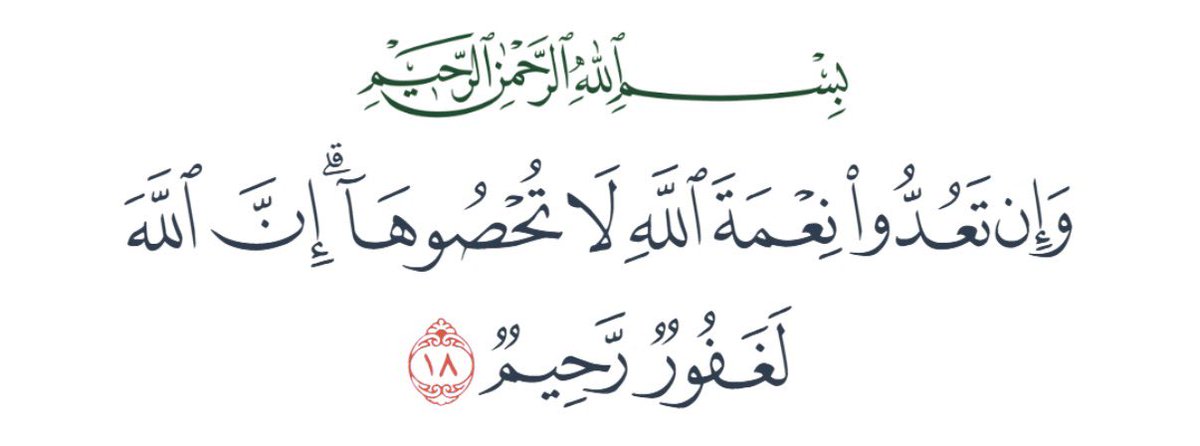 بِسْمِ ٱللَّهِ ٱلرَّحْمَٰنِ ٱلرَّحِيمِ
وَإِن تَعُدُّوا۟ نِعْمَةَ ٱللَّهِ لَا تُحْصُوهَآ ۗ إِنَّ ٱللَّهَ
لَغَفُورٌ رَّحِيمٌ ١٨